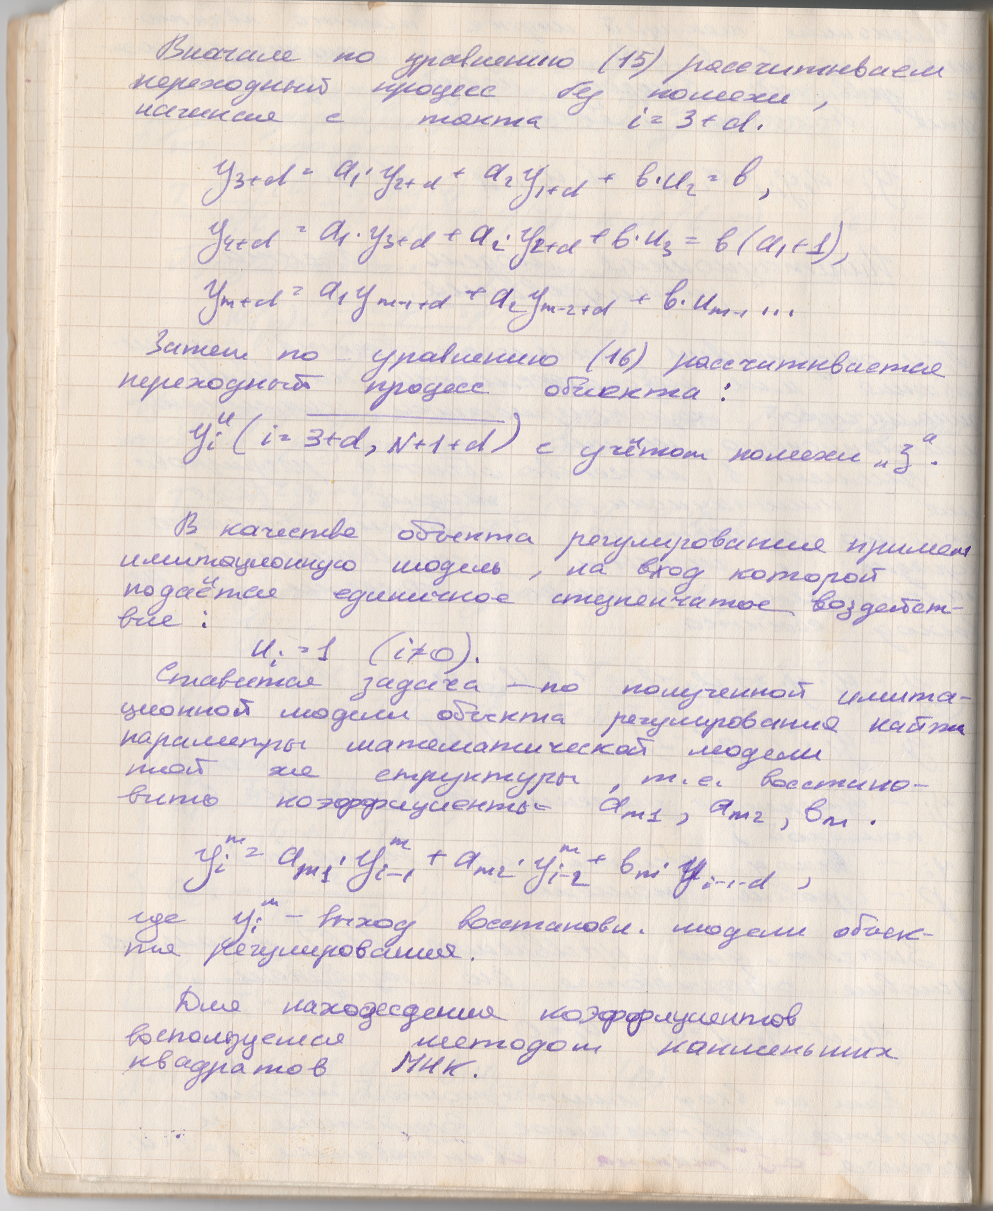 Вначале по уравнению (15) рассчитываем
переходный процесс без помехи,
начиная с такта i = 3+d.
y₃₊d = a₁·y₂₊d + a₂y₁₊d + в·u₂ = в,
y₄₊d = a₁·y₃₊d + a₂·y₂₊d + в·u₃ = в(a₁+1),
yₘ₊d = a₁yₘ₋₁₊d + a₂yₘ₋₂₊d + в·uₘ₋₁ ...
Затем по уравнению (16) рассчитывается
переходный процесс объекта:
yᵢᵘ (i = 3+d, N+1+d) с учётом помехи „ξ“.
В качестве объекта регулирования примем
имитационную модель, на вход которой
подаётся единичное ступенчатое воздейст-
вие:
uᵢ = 1 (i≠0).
Ставится задача – по полученной имита-
ционной модели объекта регулирования найти
параметры математической модели
той же структуры, т.е. восстано-
вить коэффициенты aₘ₁, aₘ₂, вₘ.
yᵢᵐ = aₘ₁·yᵢ₋₁ᵐ + aₘ₂·yᵢ₋₂ᵐ + вₘ· yᵢ₋₁₋d,
где yᵢᵐ – выход восстановл. модели объек-
та регулирования.
Для нахождения коэффициентов
воспользуемся методом наименьших
квадратов МНК.